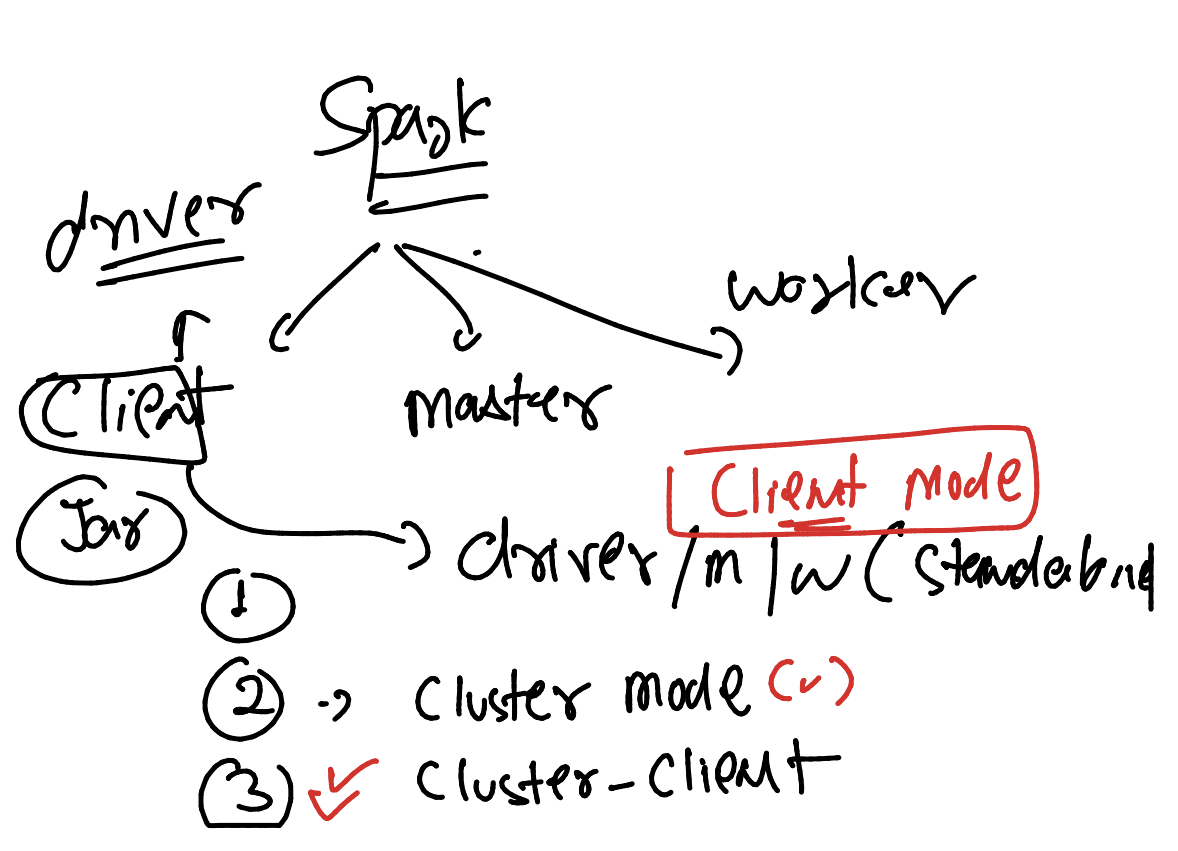 Spark
driver
worker
Client
master
Client mode
Jar
driver/m/w (
1
2 -> cluster mode (✓)
3 ✓ cluster-client